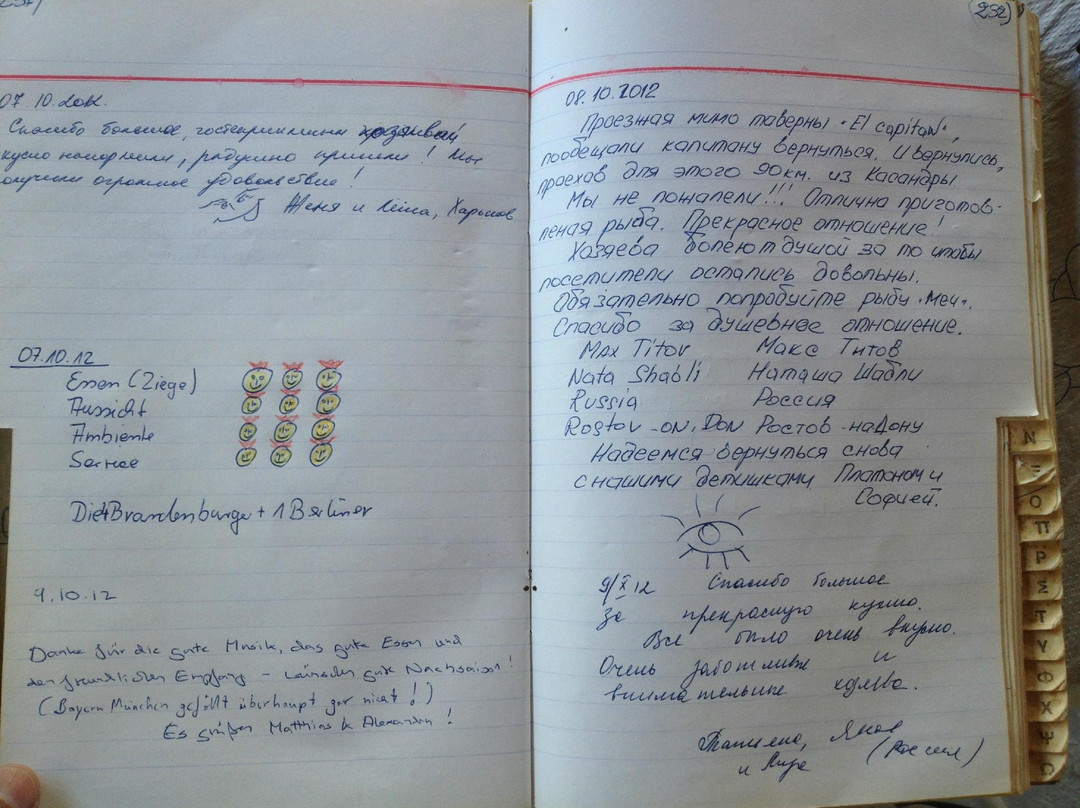 237)
07.10.2012.
Спасибо большое, гостеприимны хозяева
вкусно накормили, радушно приняли! Мы
получили огромное удовольствие!
Женя и Лёша, Харьков
07.10.12
Essen (Ziege)
Aussicht
Ambiente
Service
Die 4 Brandenburger + 1 Berliner
9.10.12
Danke für die gute Musik, das gute Essen und
den freundlichen Empfang – wünschen gute Nachsaison!
(Bayern München gefällt überhaupt gar nicht!)
Es grüßen Matthias &amp; Alexander!
232)
08.10.2012
Проезжая мимо таверны "El capitan",
пообещали капитану вернуться. И вернулись,
проехав для этого 90 км. из Касандры
Мы не пожалели!!! Отлична приготов-
леная рыба. Прекрасное отношение!
Хозяева болеют душой за то чтобы
посетители остались довольны.
Обязательно попробуйте рыбу "меч".
Спасибо за душевное отношение.
Max Titov Макс Титов
Nata Shabli Наташа Шабли
Russia Россия
Rostov-on.Don Ростов-наДону
Надеемся вернуться снова
с нашими детишками Платоном и
Софией.
9/X 12 Спасибо большое
за прекрасную кухню.
Все было очень вкусно.
Очень заботливые и
внимательные хозяева.
Татьяна, Яков
и (Россия)